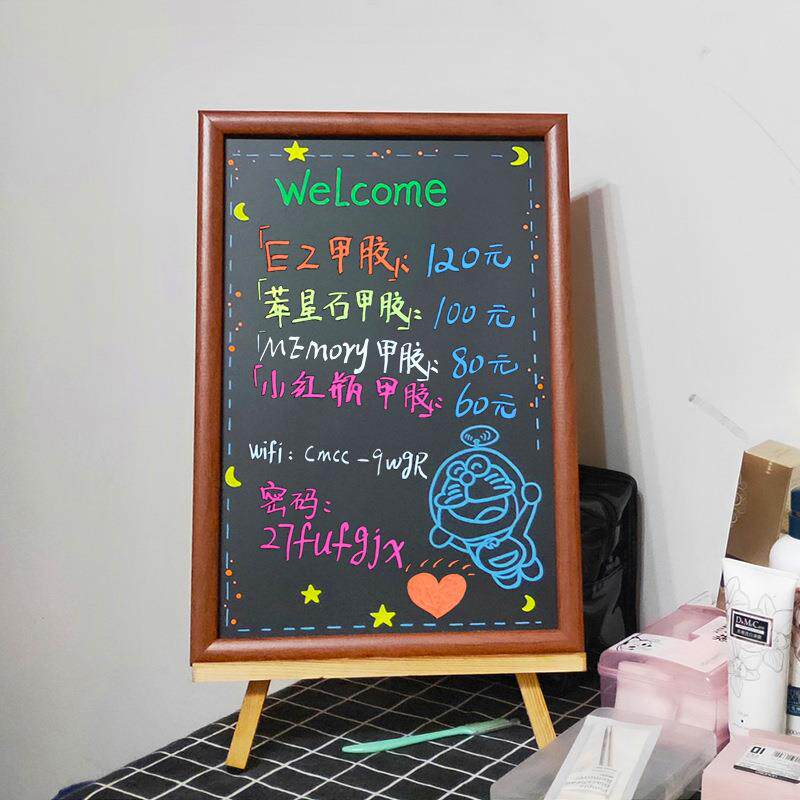 Welcome
「EZ甲胶」: 120元
「萃星石甲胶」: 100元
「MEmory甲胶」: 80元
「小红瓶甲胶」: 60元
wifi: cmcc-9wgR
密码:
27fufgjx